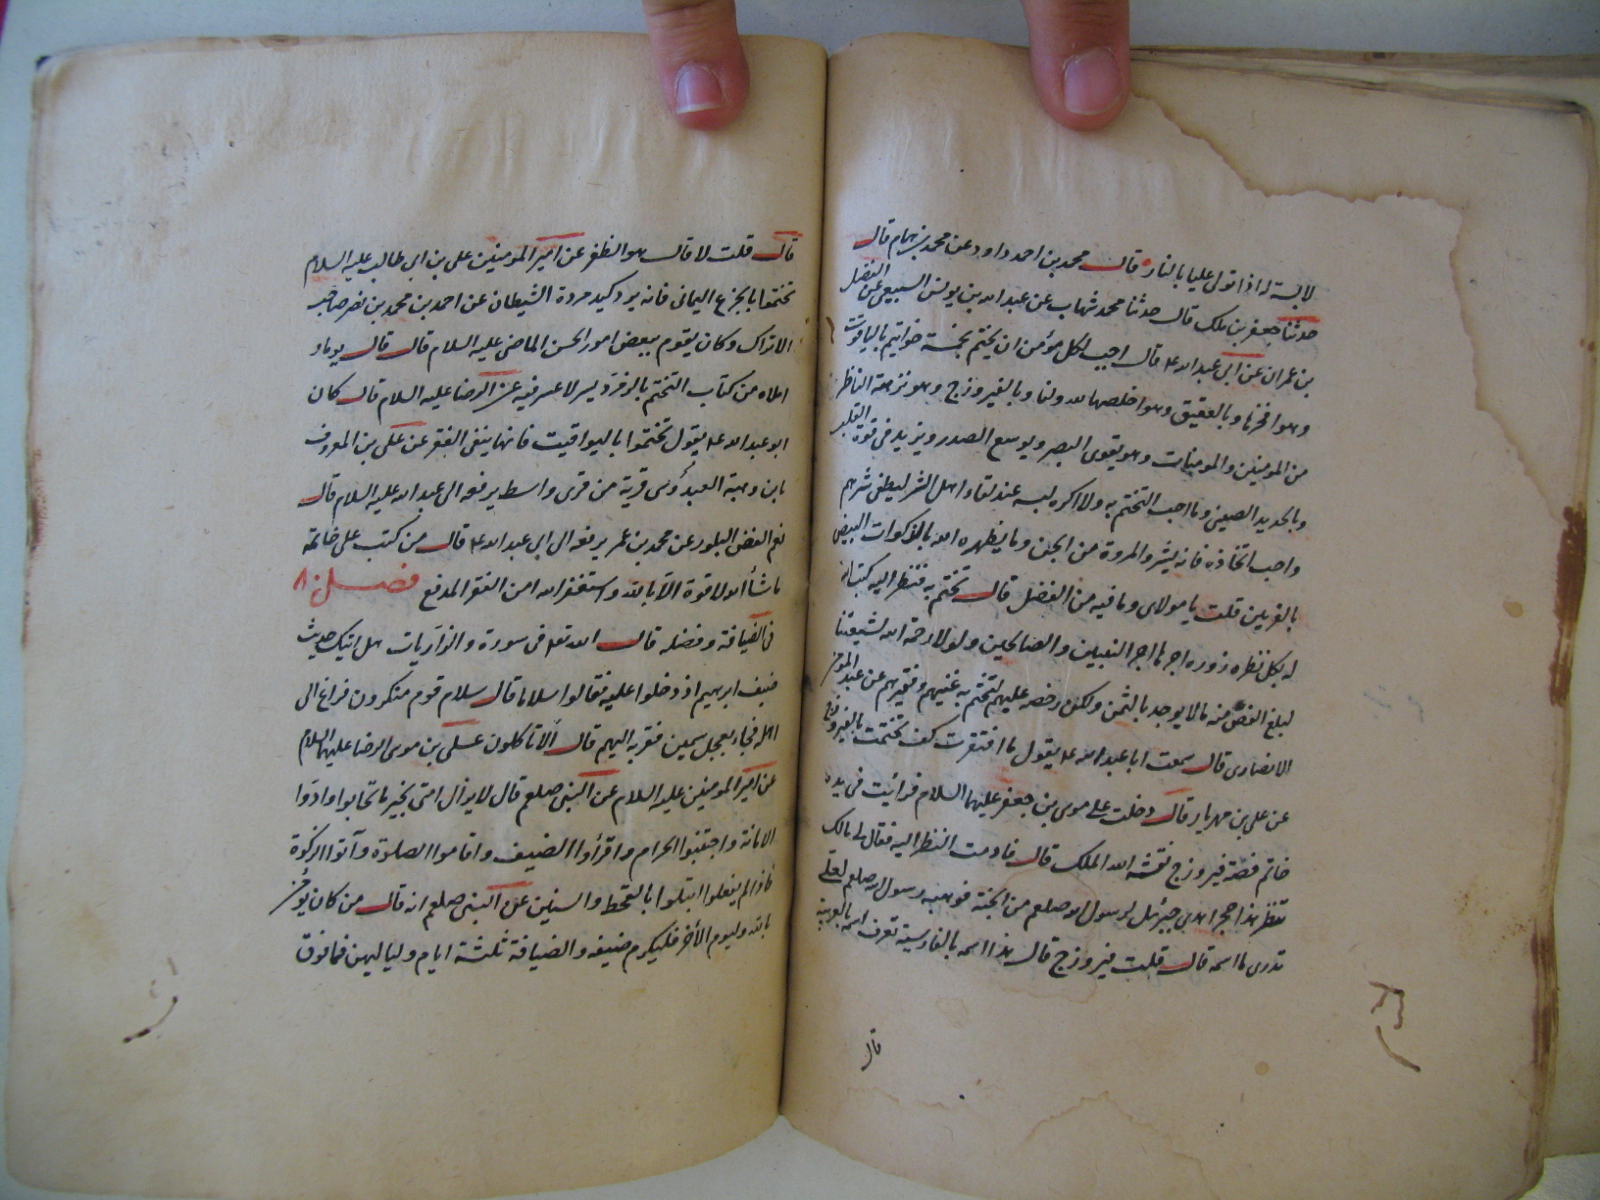 لابسة له اذا تولى عليا بالنار قال محمد بن احمد داود عن محمد بن همام قال
حدثنا جعفر بن ملك قال حدثنا محمد شهاب عن عبد الله بن يونس السبيعي عن الفضل
بن عمران عن ابى عبد الله ع قال احب لكل مؤمن ان يختم بخمسة خواتيم بالياقوت
وهو افخرها وبالعقيق وهو اخلصها لله ولنا وبالفيروزج وهو نزهة الناظر
من المومنين والمومنات وهو يقوى البصر ويوسع الصدر ويزيد فى قوة القلب
وبالحديد الصينى وما احب التختم به ولا اكره لبسه عند لقاء اهل الشر ليطفى شرهم
واحب اتخاذه فانه يشرد المردة من الجن وما يظهره الله بالذكوات البيض
بالغريين قلت يا مولاى وما فيه من الفضل قال تختم به فنظر اليه كتب الله
له بكل نظره زوره اجرها اجر النبيين والصالحين ولولا رحمة الله لشيعتنا
لبلغ الفص منه ما لا يوجد بالثمن ولكن رخصه عليهم لتختم به غنيهم وفقيرهم عن عبد المومن
الانصارى قال سمعت ابا عبد الله ع يقول ما افتقرت كف تختمت بالفيروزج
عن على بن مهريار قال دخلت على موسى بن جعفر عليهما السلام فرأيت فى يده
خاتم فضة فيروزج نقشه الله الملك قال فادمت النظر اليه فقال لى مالك
تنظر هذا حجر اهدى جبرئيل لرسول الله صلعم من الجنة فوهبه رسول الله صلعم لعلى
تدرى ما اسمه قال قلت فيروزج قال هذا اسمه بالفارسية تعرف اسمه بالعربية
قال
قال قلت لا قال هو الظفر عن امير المومنين على بن ابى طالب عليه السلام
تختموا بالجزع اليمانى فانه يرد كيد مردة الشيطان عن احمد بن محمد بن نصر صاحب
الاتراك وكان يقوم ببعض امور الحسن الماضى عليه السلام قال قال يوما و
املاه من كتاب التختم بالزمرد يسر لا عسر فيه عن الرضا عليه السلام قال كان
ابو عبد الله ع يقول تختموا باليواقيت فانها ينفى الفقر عن على بن المعروف
بابن وهبة العبدوسى قرية من قرى واسط يرفعه الى عبد الله عليه السلام قال
نعم الفص البلور عن محمد بن عمر يرفعه الى ابى عبد الله ع قال من كتب على خاتمه
ما شأ الله لا قوة الا بالله واستغفر الله امن الفقر المدقع فصل ٨٠
فى الضيافة وفضله قال الله تع فى سورة والذاريات هل اتيك حديث
ضيف ابرهيم اذ دخلوا عليه فقالوا سلاما قال سلام قوم منكرون فراغ الى
اهله فجاء بعجل سمين فقربه اليهم قال ألا تاكلون على بن موسى الرضا عليهما السلام
عن امير المومنين عليه السلام عن النبى صلعم قال لا يزال امتى بخير ما تحابوا وادوا
الامانة واجتنبوا الحرام واقرأوا الضيف واقاموا الصلوة وآتوا الزكوة
فاذا لم يفعلوا ابتلوا بالقحط والسنين عن النبى صلعم انه قال من كان يؤمن
بالله وليوم الأخر فليكرم ضيفه والضيافة ثلثة ايام ولياليهن فما فوق